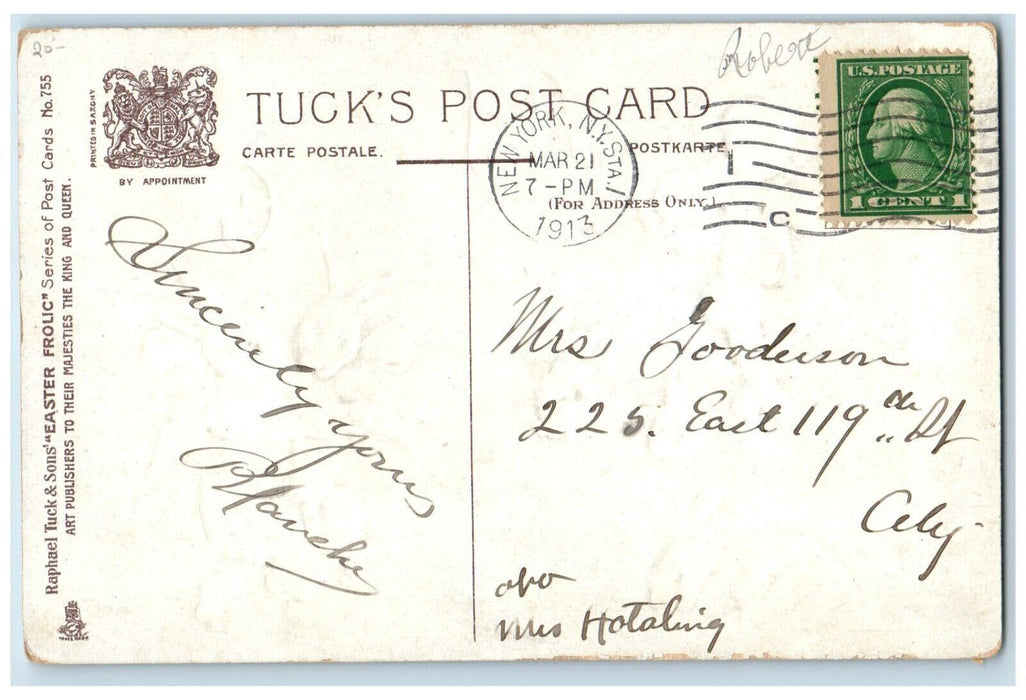 20-
Robert
TUCK'S POST CARD
CARTE POSTALE.
POSTKARTE.
(FOR ADDRESS ONLY.)
PRINTED IN SAXONY
BY APPOINTMENT
Raphael Tuck & Sons' "EASTER FROLIC" Series of Post Cards No. 755
ART PUBLISHERS TO THEIR MAJESTIES THE KING AND QUEEN.
NEW YORK, N.Y. STA. 1
MAR 21
7-PM
1913
1
C
U.S. POSTAGE
1 CENT 1
Sincerely yours
Blanche
Mrs Gooderson
225. East 119th St
City
c/o
Mrs Hotaling